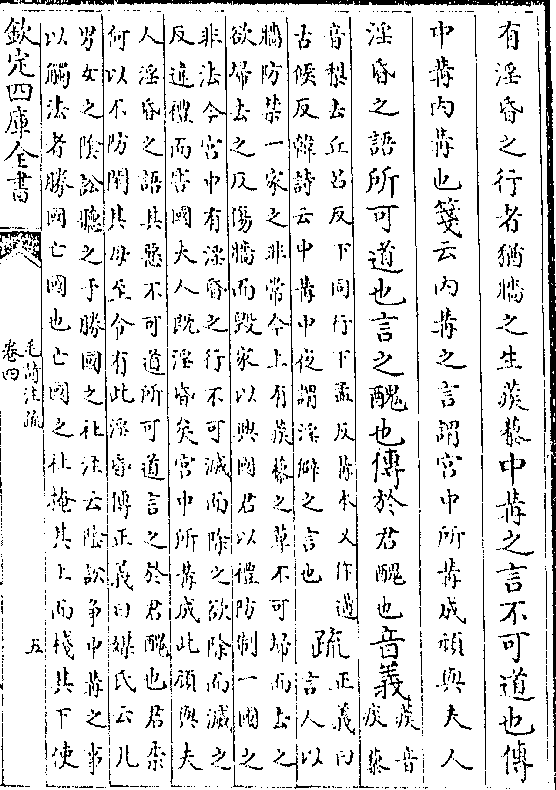 有淫昏之行者猶牆之生蒺藜中冓之言不可道也傳
中冓內冓也箋云內冓之言謂宮中所冓成頑與夫人
淫昏之語所可道也言之醜也傳於君醜也音義
蒺音
疾藜
音棃去丘呂反下同行下孟反冓本又作遘
古候反韓詩云中冓中夜謂淫僻之言也
疏
正義曰
言人以
牆防禁一家之非常今上有蒺藜之草不可埽而去之
欲埽去之反傷牆而毀家以興國君以禮防制一國之
非法今宮中有淫昏之行不可滅而除之欲除而滅之
反違禮而害國夫人既淫昏矣宮中所冓成此頑與夫
人淫昏之語其惡不可道所可道言之於君醜也君奈
何以不防閑其母至令有此淫昏傳正義曰媒氏云凡
男女之陰訟聽之于勝國之社注云陰訟爭中冓之事
以觸法者勝國亡國也亡國之社掩其上而棧其下使
欽定四庫全書
毛詩注疏
卷四
五